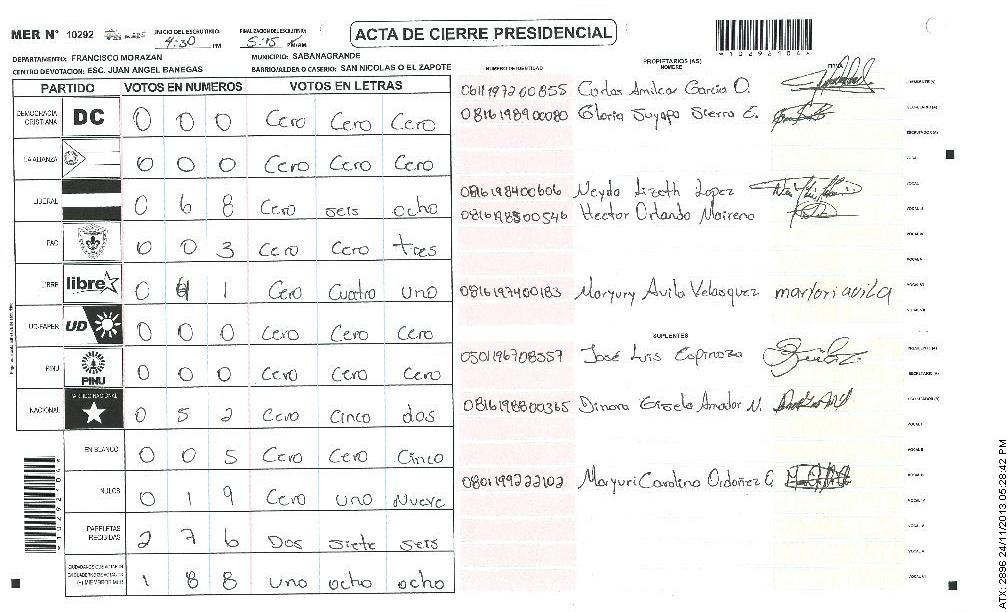 MER N° 10292
INICIO DEL ESCRUTINIO: 4:30 PM
FINALIZACION DEL ESCRUTINIO: 5:15 PM/AM
ACTA DE CIERRE PRESIDENCIAL
*10292104*
DEPARTAMENTO: FRANCISCO MORAZAN
MUNICIPIO: SABANAGRANDE
CENTRO DE VOTACION: ESC. JUAN ANGEL BANEGAS
BARRIO/ALDEA O CASERIO: SAN NICOLAS O EL ZAPOTE
PARTIDO VOTOS EN NUMEROS VOTOS EN LETRAS
DEMOCRACIA CRISTIANA DC 0 0 0 Cero Cero Cero
LA ALIANZA 0 0 0 Cero Cero Cero
LIBERAL 0 6 8 Cero seis ocho
PAC 0 0 3 Cero Cero tres
LIBRE libre 0 4 1 Cero Cuatro uno
UD-FAPER UD 0 0 0 Cero Cero Cero
PINU PINU 0 0 0 Cero Cero Cero
NACIONAL PARTIDO NACIONAL 0 5 2 Cero Cinco dos
EN BLANCO 0 0 5 Cero Cero Cinco
NULOS 0 1 9 Cero uno Nueve
PAPELETAS RECIBIDAS 2 7 6 Dos siete seis
1 8 8 uno ocho ocho
NUMERO DE IDENTIDAD
PROPIETARIOS (AS)
NOMBRE
FIRMA
0611197200855 Carlos Amilcar Garcia O.
0816198900080 Gloria Suyapa Sierra E.
0816198400606 Neyda Lizeth Lopez
0816198800546 Hector Orlando Maireno
0816197400183 Maryury Avila Velasquez marlori avila
SUPLENTES
0501196708557 José Luis Espinoza
0816198800365 Dinora Gisela Amador N.
0801199222102 Maryuri Carolina Ordoñez G
ATX: 2896 24/11/2013 05:28:42 PM